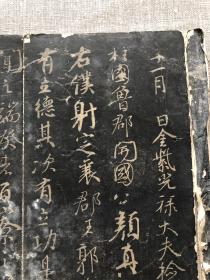 十一月 日金紫光禄大夫檢
柱國魯郡開國公顏真
右僕射定襄郡王郭
有立德其次有立功是